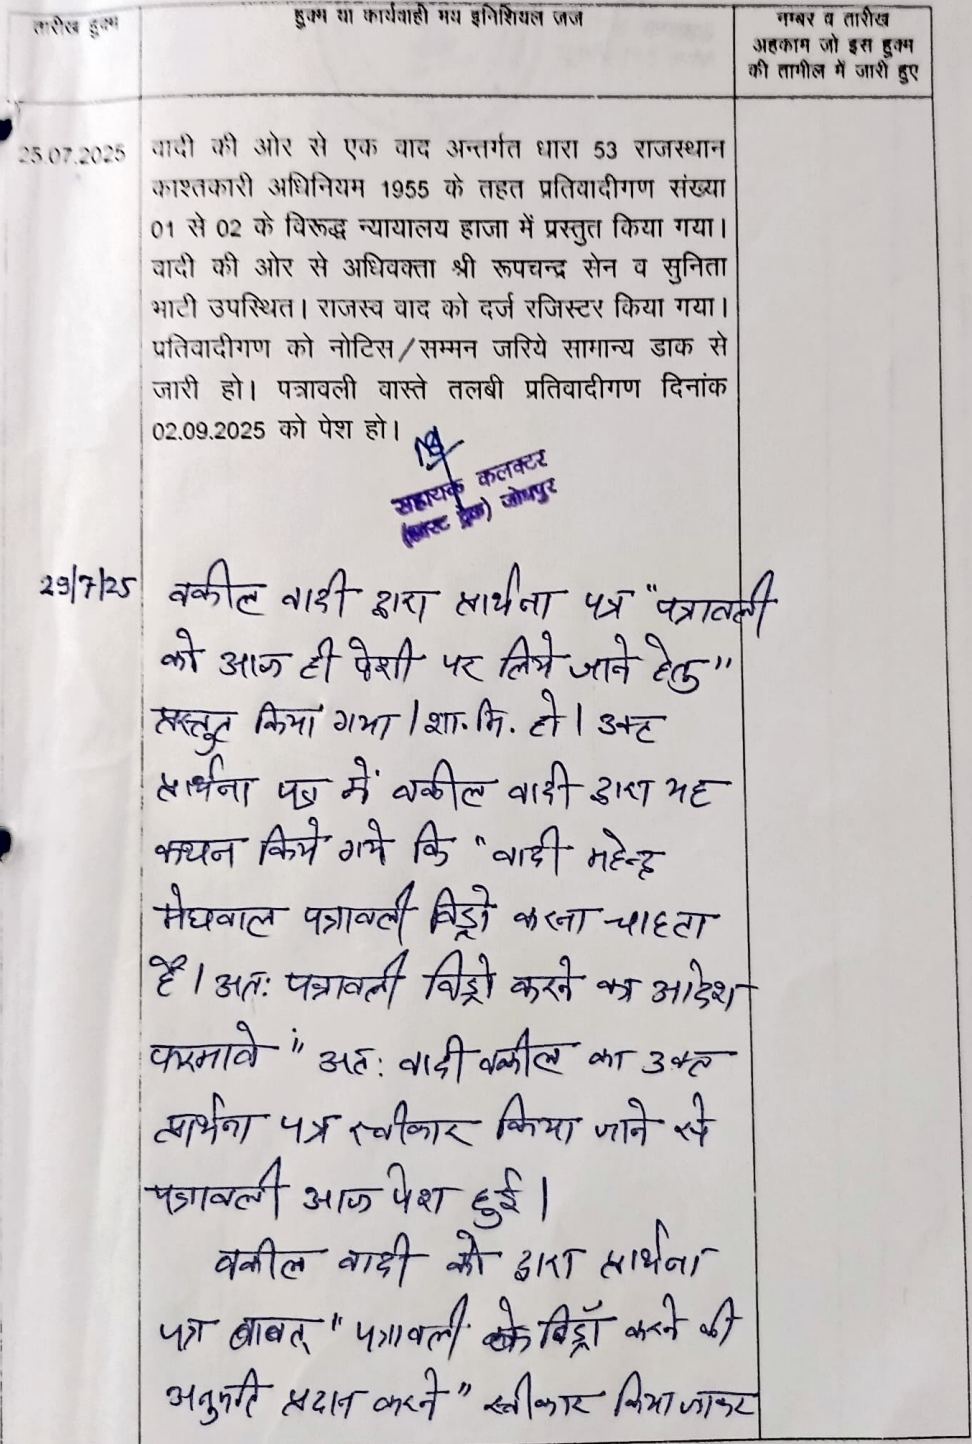 तारीख हुक्म
हुक्म या कार्यवाही मय इनिशियल जज
नम्बर व तारीख
अहकाम जो इस हुक्म
की तामील में जारी हुए
25.07.2025
वादी की ओर से एक वाद अन्तर्गत धारा 53 राजस्थान
काश्तकारी अधिनियम 1955 के तहत प्रतिवादीगण संख्या
01 से 02 के विरूद्ध न्यायालय हाजा में प्रस्तुत किया गया।
वादी की ओर से अधिवक्ता श्री रूपचन्द्र सेन व सुनिता
भाटी उपस्थित। राजस्व वाद को दर्ज रजिस्टर किया गया।
प्रतिवादीगण को नोटिस/सम्मन जरिये सामान्य डाक से
जारी हो। पत्रावली वास्ते तलबी प्रतिवादीगण दिनांक
02.09.2025 को पेश हो।
सहायक कलक्टर
(फास्ट ट्रेक) जोधपुर
29/7/25
वकील वादी द्वारा प्रार्थना पत्र "पत्रावली
को आज ही पेशी पर लिये जाने हेतु"
प्रस्तुत किया गया। शा.मि. हो। उक्त
प्रार्थना पत्र में वकील वादी द्वारा यह
कथन किये गये कि "वादी महेन्द्र
मेघवाल पत्रावली विड्रो करना चाहता
है। अतः पत्रावली विड्रो करने का आदेश
फरमावे" अतः वादी वकील का उक्त
प्रार्थना पत्र स्वीकार किया जाने से
पत्रावली आज पेश हुई।
वकील वादी को द्वारा प्रार्थना
पत्र बाबत् "पत्रावली विड्रॉ करने की
अनुमति प्रदान करने" स्वीकार किया जाकर